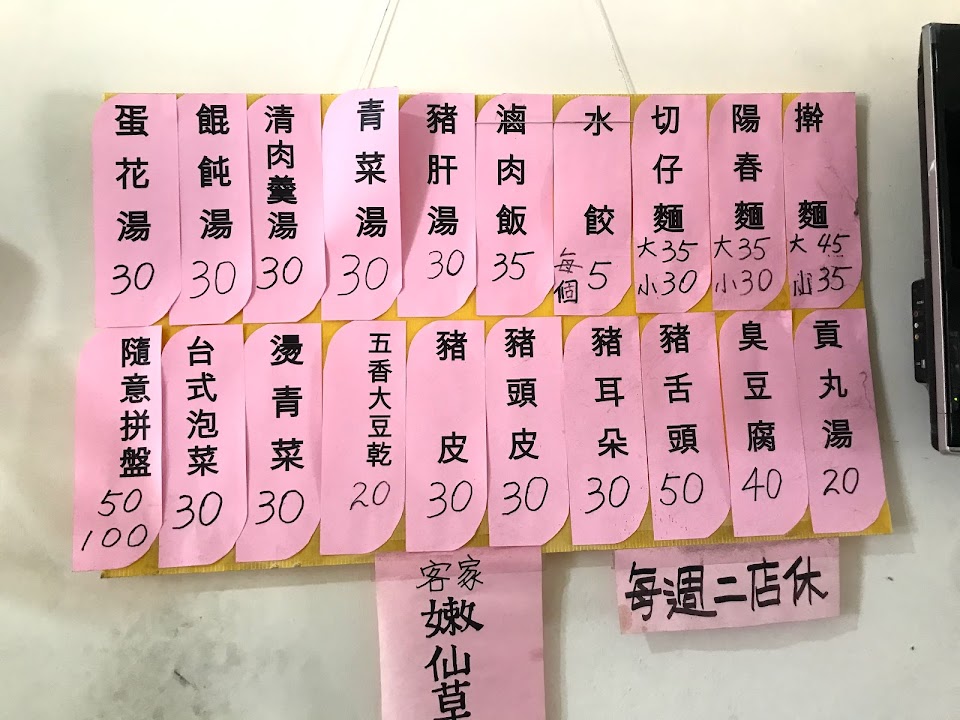 擀麵
大45
小35
陽春麵
大35
小30
切仔麵
大35
小30
水餃
每個5
滷肉飯
35
豬肝湯
30
青菜湯
30
清肉羹湯
30
餛飩湯
30
蛋花湯
30
貢丸湯
20
臭豆腐
40
豬舌頭
50
豬耳朵
30
豬頭皮
30
豬皮
30
五香大豆乾
20
燙青菜
30
台式泡菜
30
隨意拼盤
50
100
每週二店休
客家
嫩仙草